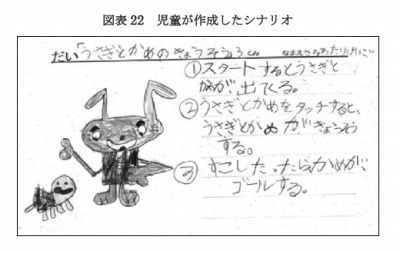 図表 22 児童が作成したシナリオ
だい「うさぎとかめのきょうそう」
①スタートするとうさぎと
かめが出てくる。
②うさぎとかめをタッチすると、
うさぎとかめがきょうそう
する。
③すこしたったらかめが、
ゴールする。